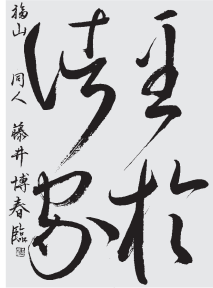 至於
法家
福山 同人 藤井博春臨